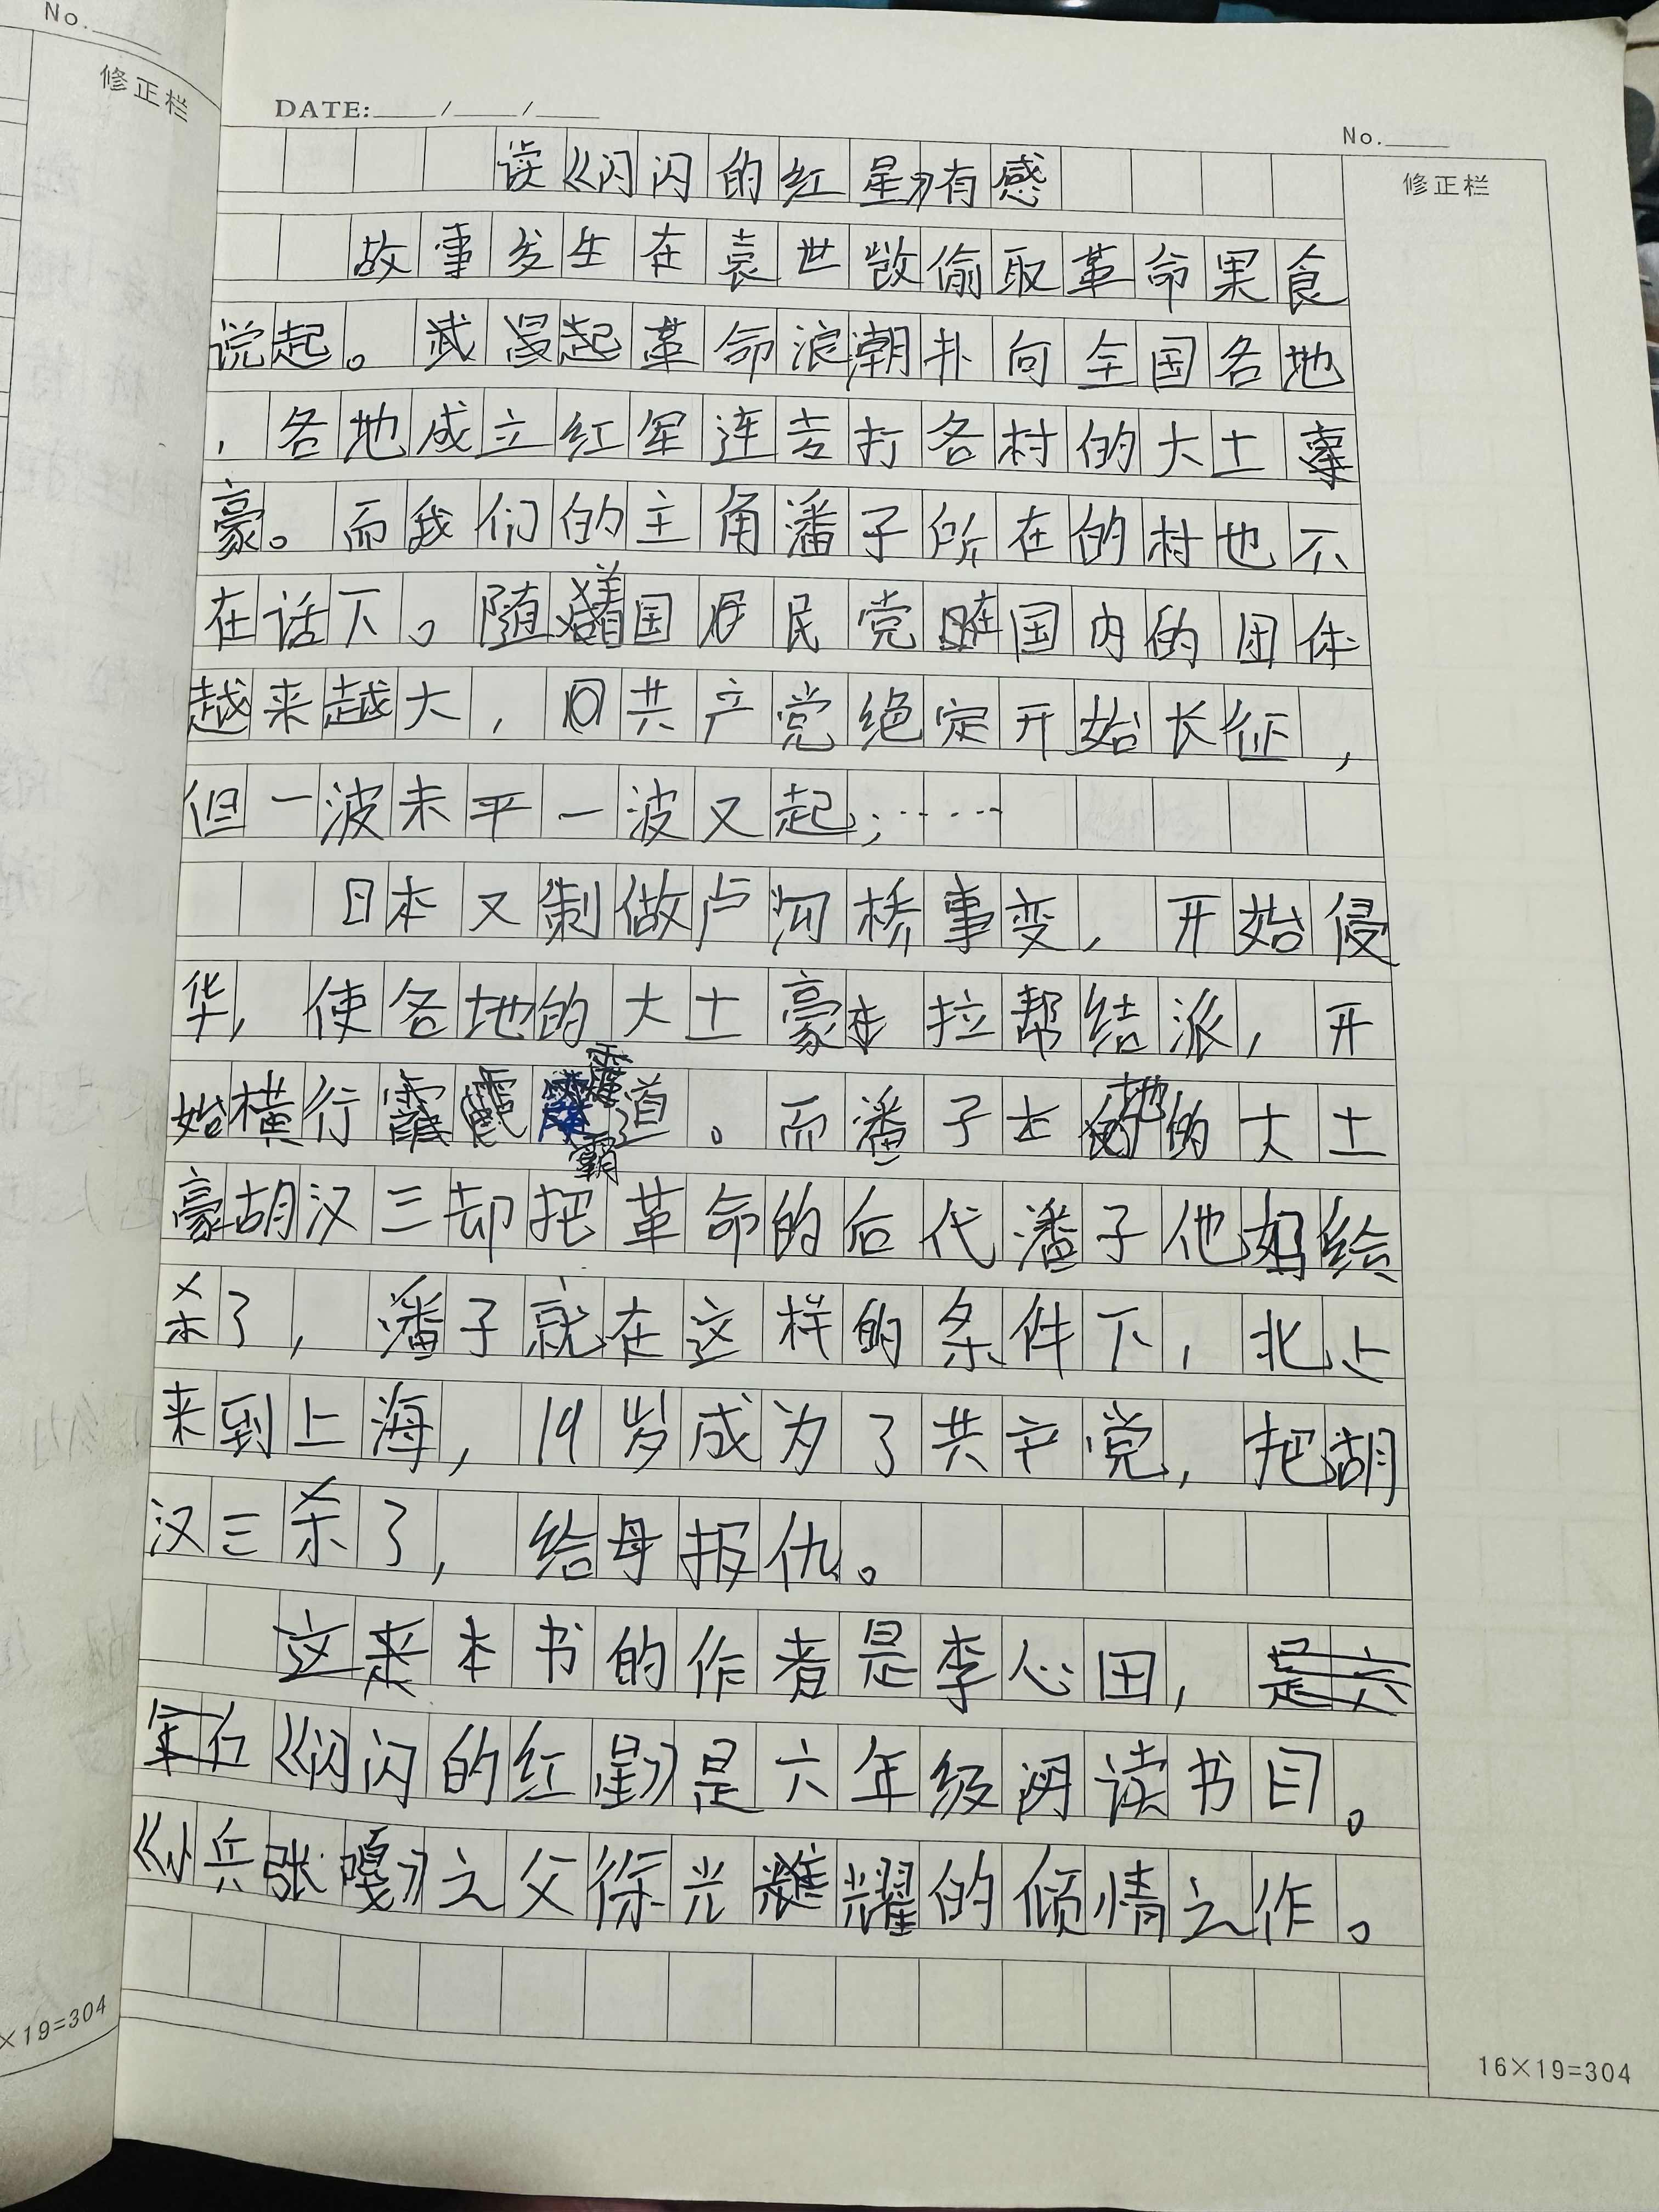 No.
修正栏
DATE: / /
No.
修正栏
读《闪闪的红星》有感
故事发生在袁世敳偷取革命果食
说起。武昌起革命浪潮扑向全国各地
，各地成立红军连去打各村的大土
豪。而我们的主角潘子所在的村也不
在话下。随着国民党在国内的团体
越来越大，共产党绝定开始长征，
但一波未平一波又起；……
日本又制做卢沟桥事变，开始侵
华，使各地的大土豪拉帮结派，开
始横行霸道。而潘子土地的大土
豪胡汉三却把革命的后代潘子他妈给
杀了，潘子就在这样的条件下，北上
来到上海，19岁成为了共产党，把胡
汉三杀了，给母报仇。
这本书的作者是李心田，
《闪闪的红星》是六年级阅读书目。
《小兵张嘎》之父徐光耀的倾情之作。
×19=304
16×19=304